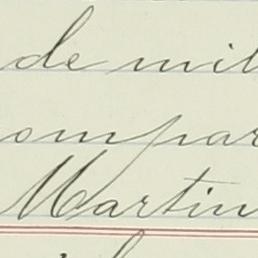 de mil
ompar
Martin